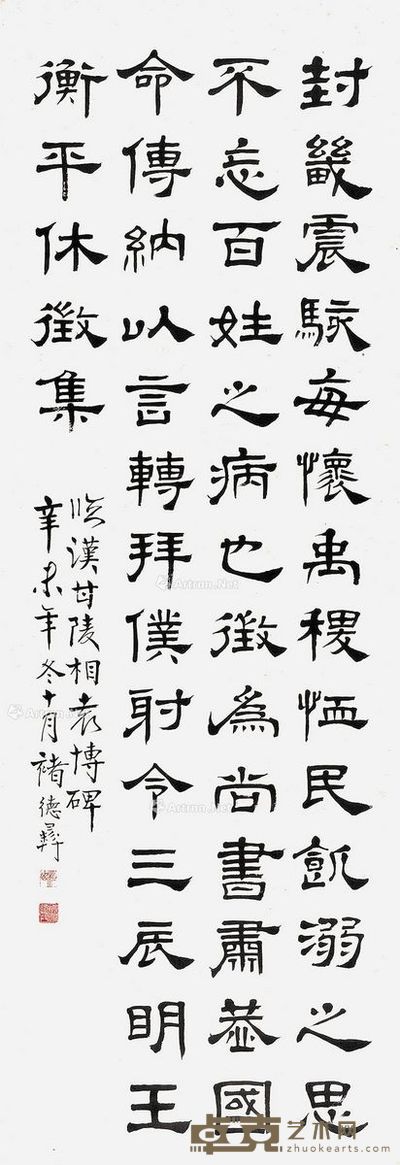 封畿震駭每懷禹稷恤民飢溺之思
不忘百姓之病也徵為尚書肅恭國
命傳納以言轉拜僕射令三辰明王
衡平休徵集
臨漢甘陵相袁博碑
辛未年冬十月褚德彝
Artron.Net
Artron.Net
Artron.Net
卓克艺术网
zhuokearts.com